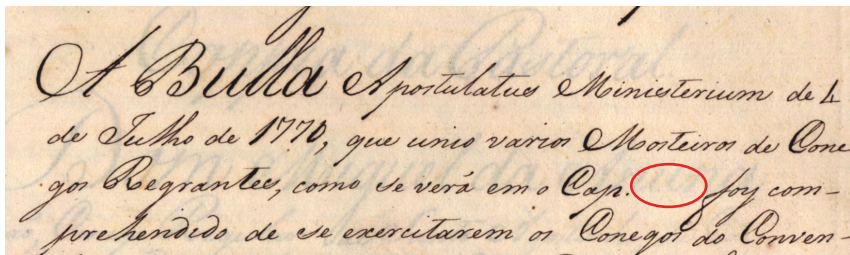 A Bulla Apostulatus Ministerium de 4
de Julho de 1770, que unio varios Mosteiros de Cone
gos Regrantes, como se verá em o Cap. foy com-
prehendido de se exercitarem os Conegos do Conven-